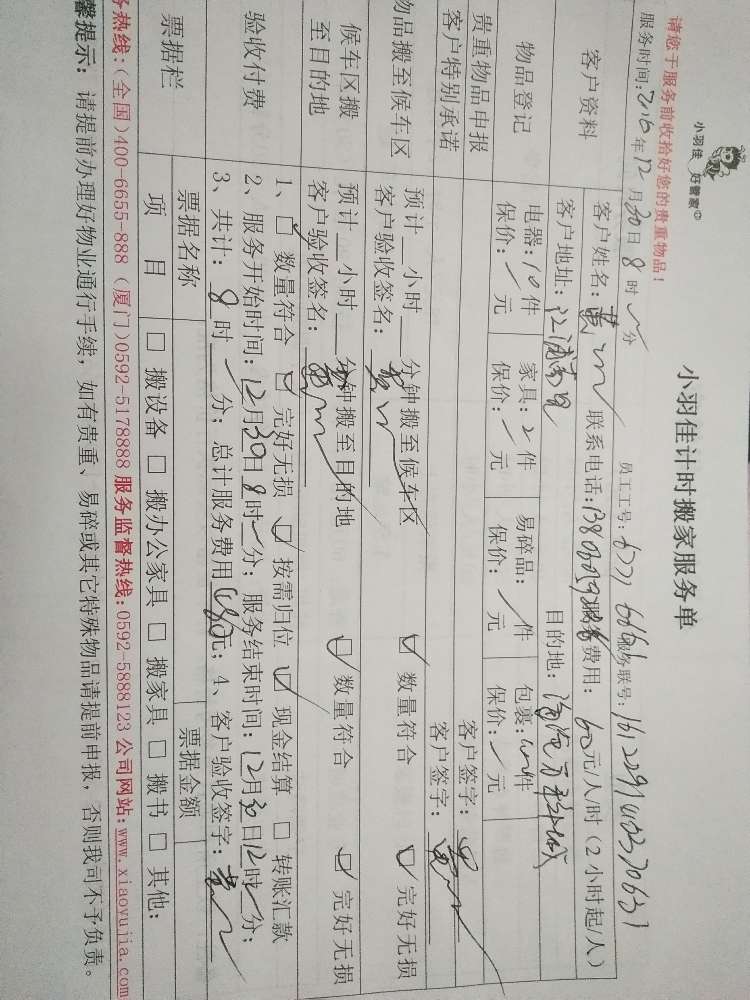 小羽佳 好管家
小羽佳计时搬家服务单
请您于服务前收拾好您的贵重物品!
服务时间: 2016年12月30日8时 分 员工工号: 服务联号:
客户资料 客户姓名: 黄 联系电话: 服务费用: 60元/人/时 (2小时起/人)
客户地址: 目的地:
物品登记 电器: 10件 家具: 2件 易碎品: /件 包裹: 件
保价: /元 保价: /元 保价: /元 保价: /元
贵重物品申报 客户签字:
客户特别承诺 客户签字:
物品搬至候车区 预计__小时__分钟搬至候车区 ☑ 数量符合 ☑ 完好无损
客户验收签名:
候车区搬至目的地 预计__小时__分钟搬至目的地 ☑ 数量符合 ☑ 完好无损
客户验收签名:
验收付费 1、☑ 数量符合 ☑ 完好无损 ☑ 按需归位 ☑ 现金结算 □ 转账汇款
2、服务开始时间: 12月30日8时 分; 服务结束时间: 12月30日12时 分;
3、共计: 8时/分; 总计服务费用 元; 4、客户验收签字:
票据栏 票据名称 票据金额
项目 □ 搬设备 □ 搬办公家具 □ 搬家具 □ 搬书 □ 其他:
务热线: (全国)400-6655-888 (厦门)0592-5178888 服务监督热线: 0592-5888123 公司网站: www.xiaoyujia.com
馨提示: 请提前办理好物业通行手续, 如有贵重、易碎或其它特殊物品请提前申报, 否则我司不予负责。